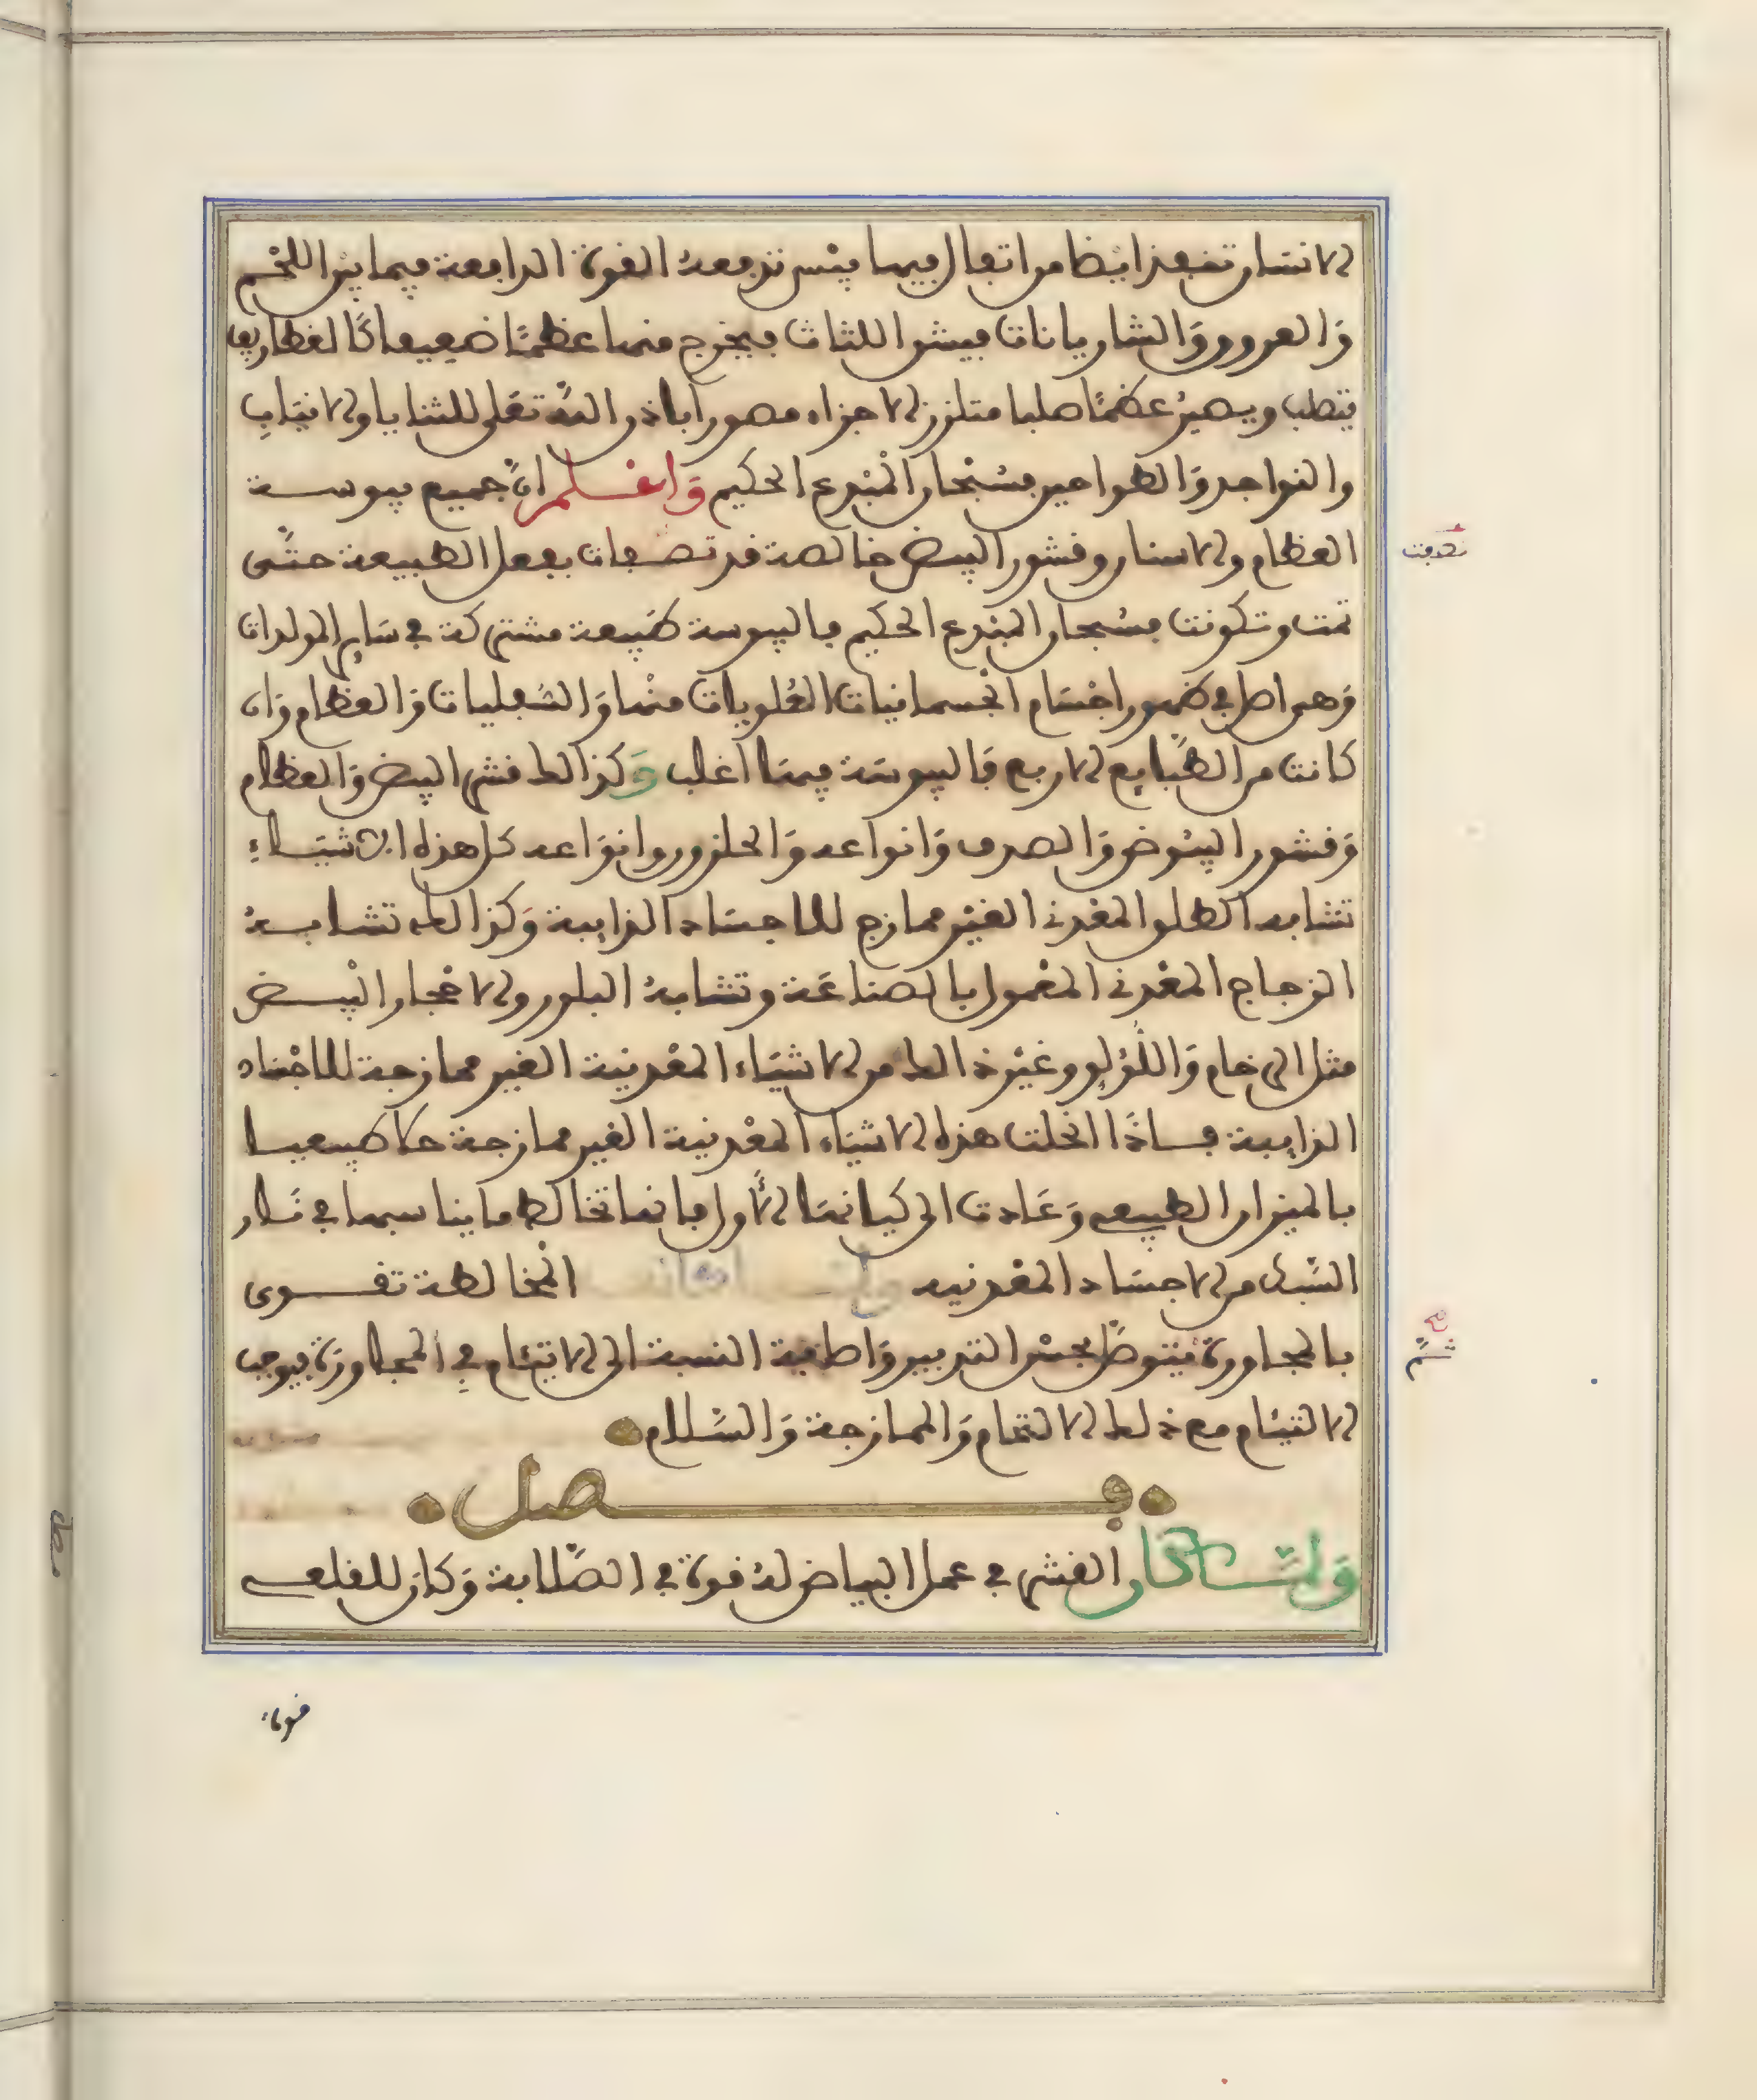 الانسان تنعقد ايضا من اثفال فيها ينس تدفعه القوة الدافعة فيما بين اللحم
والعروق والشاريانات فيشق اللثات فيخرج منها عظمًا ضعيفا كالغضاريف
يتصلب ويصير عظمًا صلبا متلزز الاجزاء مصورا باذن الله تعلى للثنايا والانياب
والنواجد والطواحين فسبحان المبدع الحكيم واعلم ان جميع يبوسة
العظام والاسنان وقشور البيض خالصة قد تصفات بفعل الطبيعة حتى
تمت وتكونت فسبحان المبدع الحكيم فاليبوسة طبيعة مشتركة في ساير المولدات
وهي اصل في ظهور اجسام الجسمانيات العلويات منها والسفليات والعظام وان
كانت من الطبايع الاربع فاليبوسة فيها اغلب وكذالك قشر البيض والعظام
وقشور البيوض والصدف وانواعه والحلزون وانواعه كل هذه الاشياء
تشابه الطلق المعدني الغير ممازج للاجساد الذايبة وكذالك تشابه
الزجاج المعدني المعمول بالصناعة وتشابه البلور والاحجار البيض
مثل الرخام واللؤلو وغير ذالك من الاشياء المعدنية الغير ممازجة للاجساد
الذايبة فاذا انحلت هذه الاشياء المعدنية الغير ممازجة حلا طبيعيا
بالميزان الطبيعي وعادت الى كيانها الاول فانها تخالط ما يناسبها في نار
السبك من الاجساد المعدنيه المخالطة تقوى
بالمجاورة فيتوصل بحسن التدبير واصلية النسبة الى الاتيام في المجاورة فيوجب
الالتيام مع ذلك الالتحام والممازجة والسلام
فصل
ولما كان القشر في عمل البياض له قوة في الصلابة وكان للقلعي
قوة